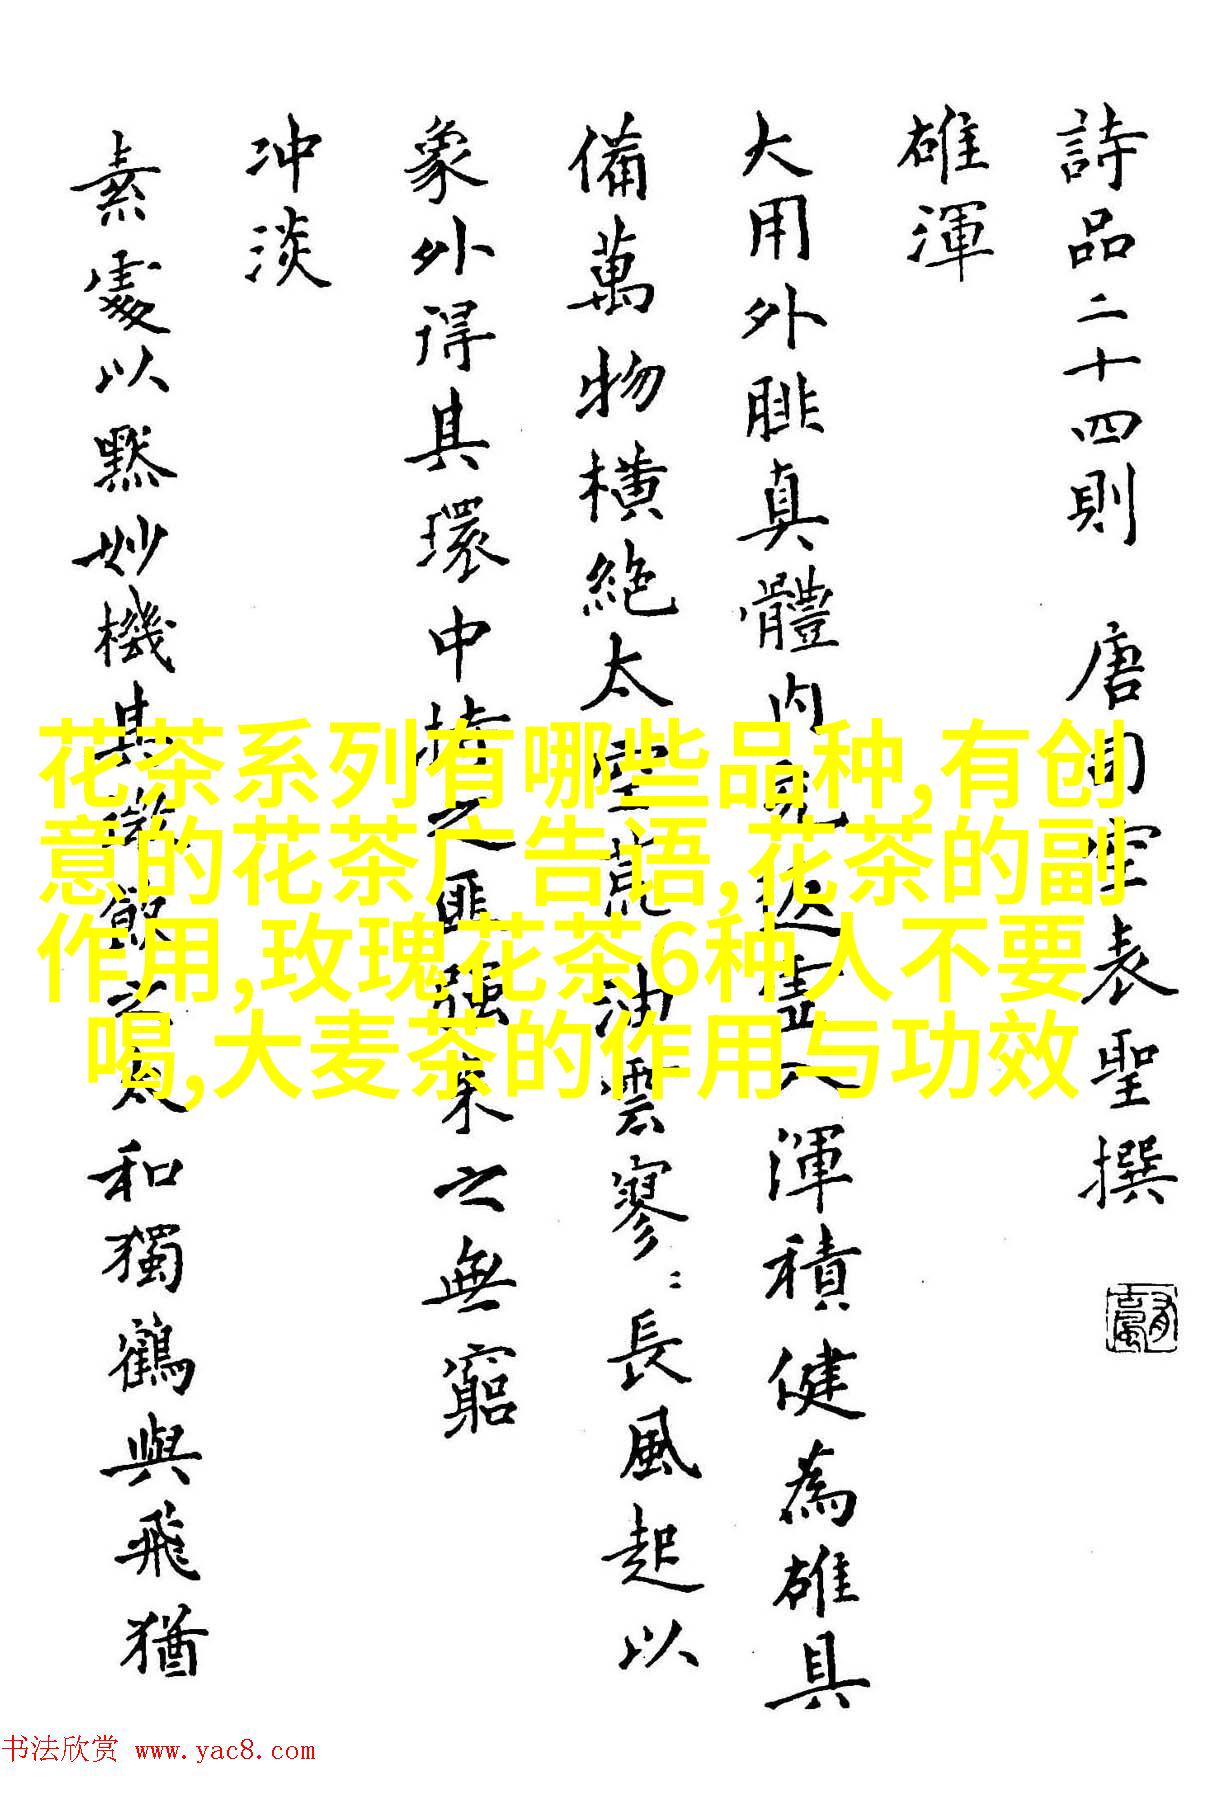 詩品二十四則 唐司空表聖撰
雄渾
大用外腓真體内充返虛入渾積健為雄具
備萬物橫絕太空荒油雲寥〻長風超以
象外得其環中持之匪強来之無窮
冲淡
素處以默妙機其微飲之太和獨鶴與飛猶
花茶系列有哪些品种,有创
意的花茶广告语,花茶的副
作用,玫瑰花茶6种人不要
喝,大麦茶的作用与功效
书法欣赏 www.yac8.com